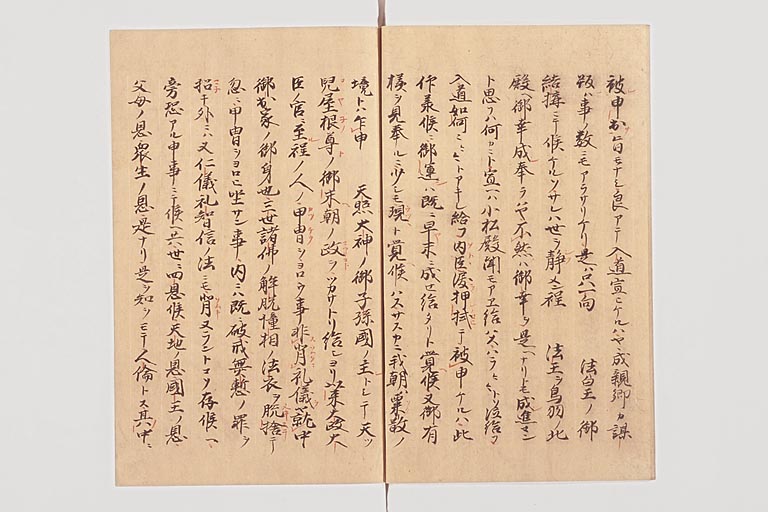 被申出旨モナシ良アテ入道宣ヒケルハヤ成親卿カ謀
叛ハ事ノ数ニモアラサリケリ是ハ只一向 法皇ノ御
結搆ニテ候ケルソサレハ世ヲ静メン程 法王ヲ鳥羽ノ北
殿ヘ御幸成奉ラハヤ不然ハ御幸ヲ是ヘナリトモ成進セン
ト思フハ何ニト宣ヘハ小松殿聞モアヘ給ハスハラヘヽトソ泣給フ
入道如何ニヽヽトアキレ給フ内臣涙押拭テ被申ケルハ此
仰承候ニ御運ハ既ニ早末ニ成セ給タリト覚候又御有
様ヲ見奉ルニ少シモ現ト覚候ハスサスカニ我朝ハ粟散ノ
境トハ乍申 天照大神ノ御子孫國ノ主トシテ天ツ
児屋根尊ノ御末朝ノ政ヲツカサトリ給シヨリ以来太政大
臣ノ官ニ至程ノ人ノ甲冑ヲヨロフ事非背礼儀就中
御出家ノ御身也三世諸佛ノ解脱幢相ノ法衣ヲ脱捨テ
忽ニ甲冑ヲヨロヒ坐サン事内ニハ既ニ破戒無慙ノ罪ヲ
招キ外ニハ又仁儀礼智信ノ法ニモ背又ラントコソ存候ヘ
旁恐アル申事ニテ候ヘ共世ニ四恩候天地ノ恩國王ノ恩
父母ノ恩衆生ノ恩是ナリ是ヲ知ヲモテ人倫トス其中ニ